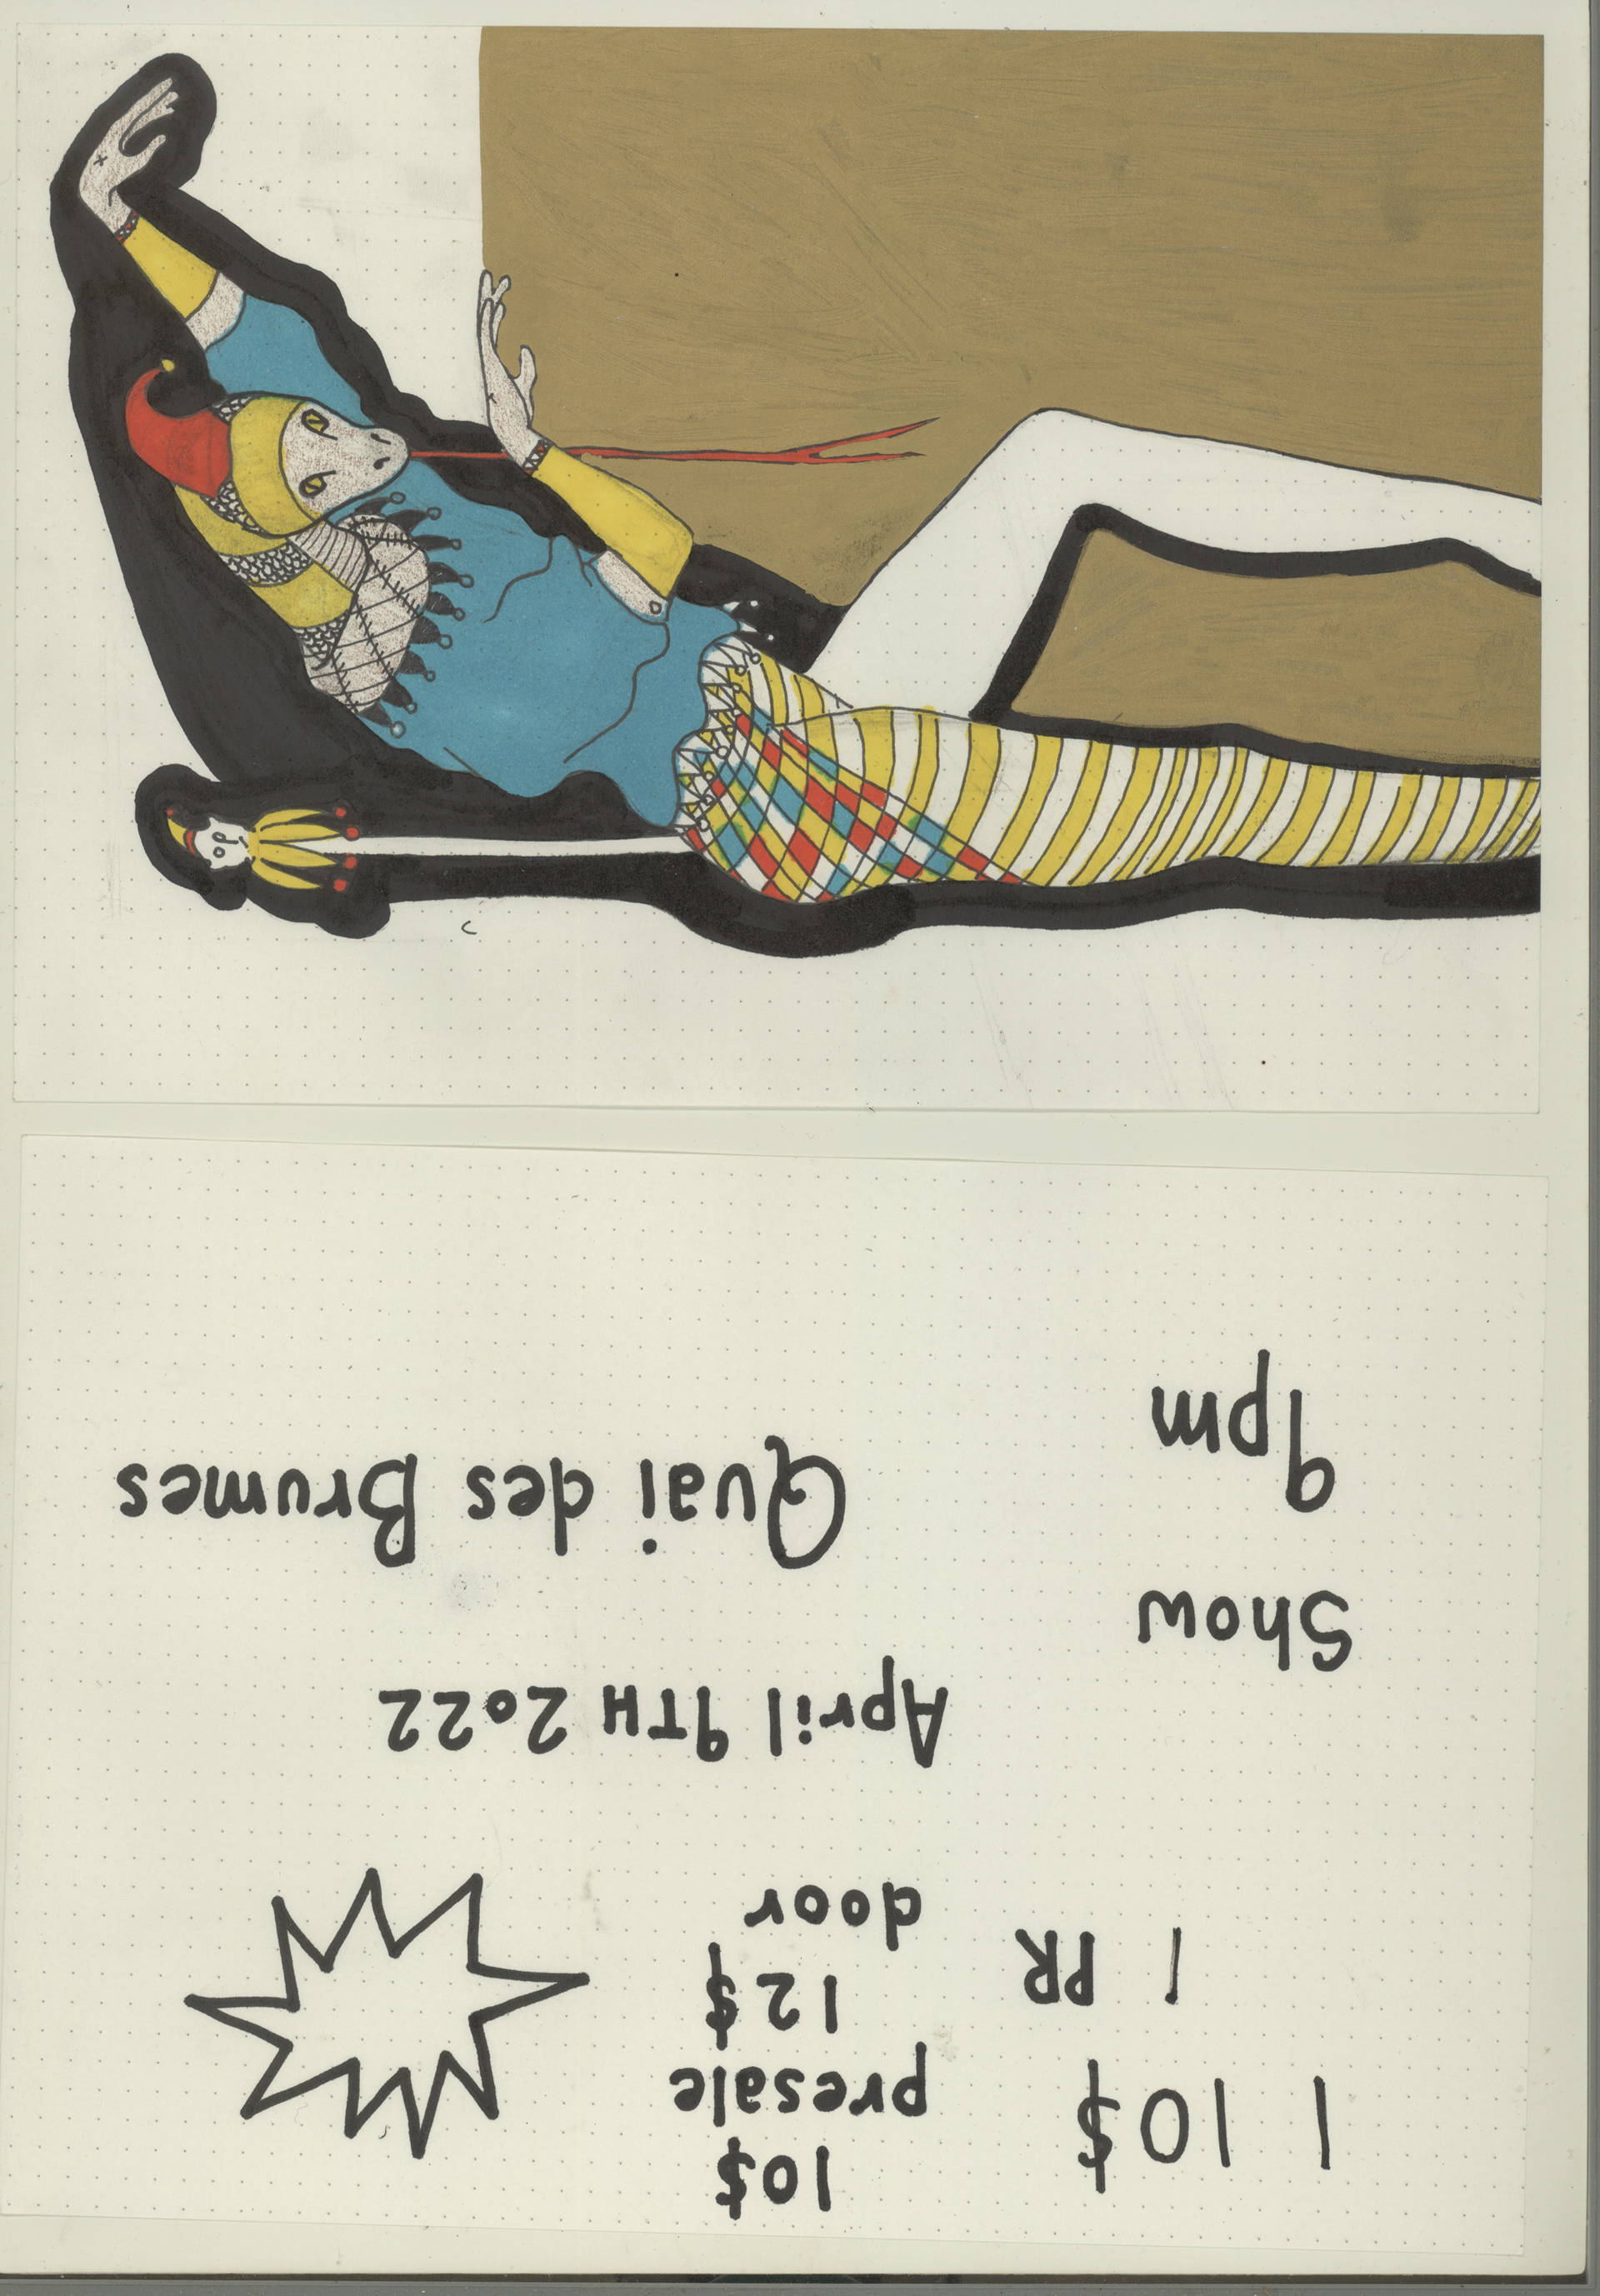 1 10$
10$
presale
1 PR
12$
door
April 9TH 2022
Show
9pm
Quai des Brumes